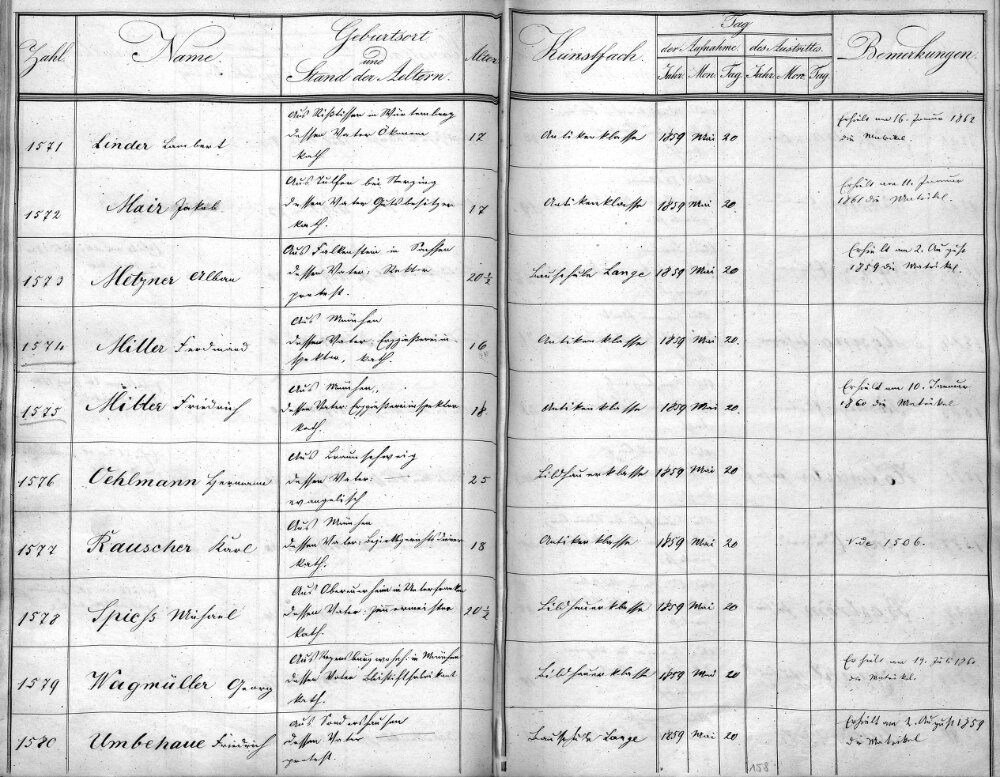 Zahl. Name. Geburtsort und Stand der Aeltern. Alter. Kunstfach. Tag der Aufnahme. des Austrittes. Bemerkungen.
Jahr. Mon. Tag Jahr. Mon. Tag.
Aus Rißtissen in Würtemberg
1571 Linder Lambert dessen Vater Ökonom 17 Antikenklasse 1859 Mai 20 Erhielt am 16. Januar 1862
kath die Matrikel.
Aus Tulfer bei Sterzing
1572 Mair Jakob dessen Vater Gutsbesitzer 17 Antikenklasse 1859 Mai 20. Erhielt am 11. Januar
kath. 1861 die Matrikel.
Aus Falkenstein in Sachsen Erhielt am 2. August
1573 Metzner Alban dessen Vater: Rektor 20½ Bauschule Lange 1859 Mai 20 1859 die Matrikel.
protest.
Aus München
1574 Miller Ferdinand dessen Vater: Erzgießereiin 16 Antikenklasse 1859 Mai 20.
spektor, kath.
Aus München, Erhielt am 10. Januar
1575 Miller Friedrich dessen Vater: Erzgießereiinspektor 18 Antikenklasse 1859 Mai 20. 1860 die Matrikel
kath.
Aus Braunschweig
1576 Oehlmann Hermann dessen Vater: 25 Bildhauerklasse 1859 Mai 20
evangelisch
Aus München
1577 Rauscher Karl dessen Vater: 18 Antikenklasse 1859 Mai 20 vide 1506.
kath.
Aus in Unterfranken
1578 Spieß Michael dessen Vater: Zimmermeister 20½ Bildhauerklasse 1859 Mai 20
kath.
Aus Regensburg wohnh. in München Erhielt am 19. Juli 1860
1579 Wagmüller Georg dessen Vater Bleistiftfabrikant Bildhauerklasse 1859 Mai 20 die Matrikel.
kath.
Aus Sondershausen Erhielt am 2. August 1859
1580 Umbehaue Friedrich dessen Vater Bauschule Lange 1859 Mai 20 die Matrikel
protest.
158